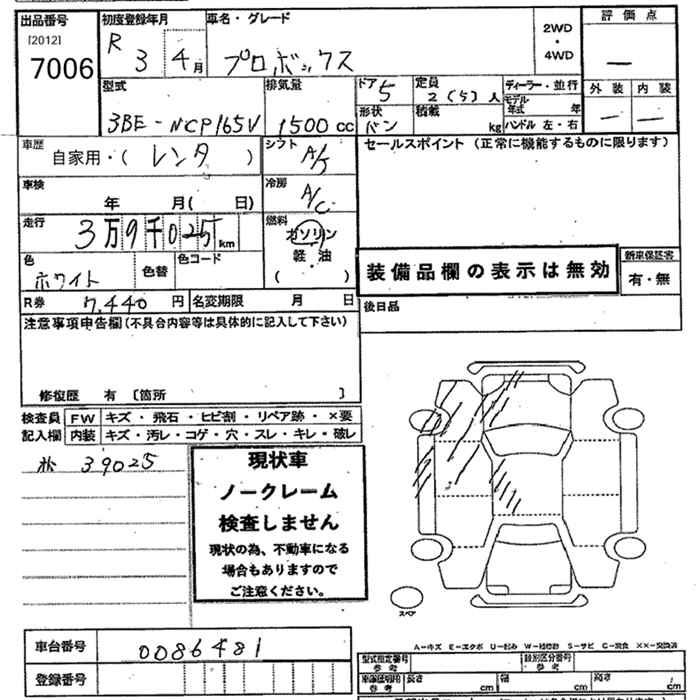 出品番号 初度登録年月 車名・グレード 2WD ・ 4WD 評価点
[2012]
7006 R 3 4月 プロボックス —
型式 排気量 ドア 5 定員 2(5)人 ディーラー・並行 外装 内装
3BE-NCP165V 1500cc 形状 バン 積載 kg モデル年式 年 — —
ハンドル 左・右
車歴 自家用・(レンタ) シフト A/T セールスポイント (正常に機能するものに限ります)
車検 年 月( 日) 冷房 A/C
走行 3万9千025km 燃料 ガソリン
軽油
( )
色 ホワイト 色替 色コード 装備品欄の表示は無効 新車保証書
有・無
R券 7,440円 名変期限 月 日 後日品
注意事項申告欄(不具合内容等は具体的に記入して下さい)
修復歴 有 〔箇所 〕
検査員 FW キズ・飛石・ヒビ割・リペア跡・×要
記入欄 内装 キズ・汚レ・コゲ・穴・スレ・キレ・破レ
39025
現状車
ノークレーム
検査しません
現状の為、不動車になる
場合もありますので
ご注意ください。
スペア
車台番号 0086481
登録番号
A−キズ E−エクボ U−凹み W−補修跡 S−サビ C−腐食 ××−交換済
型式指定番号 参考 類別区分番号 参考
参考 長さ cm 幅 cm 高さ cm